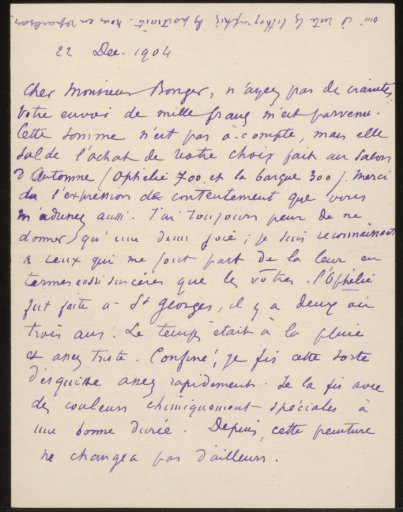 22 Dec. 1904
Cher Monsieur Bonger, n'ayez pas de craintes,
votre envoi de mille francs m'est parvenu.
Cette somme n'est pas à-compte, mais elle
solde l'achat de votre choix fait au Salon
d'Automne (Ophélie 700, et la barque 300). Merci
de l'expression de contentement que vous
m'adressez aussi. J'ai toujours peur de ne
donner qu'une demi joie; je suis reconnaissant
à ceux qui me font part de la leur en
termes aussi sincères que les vôtres. l'Ophélie
fut faite à St Georges, il y a deux ou
trois ans. Le temps était à la pluie
et assez triste. Confiné, je fis cette sorte
d'esquisse assez rapidement. Je la fis avec
des couleurs chimiquement spéciales à
une bonne durée. Depuis, cette peinture
ne changea pas d'ailleurs.